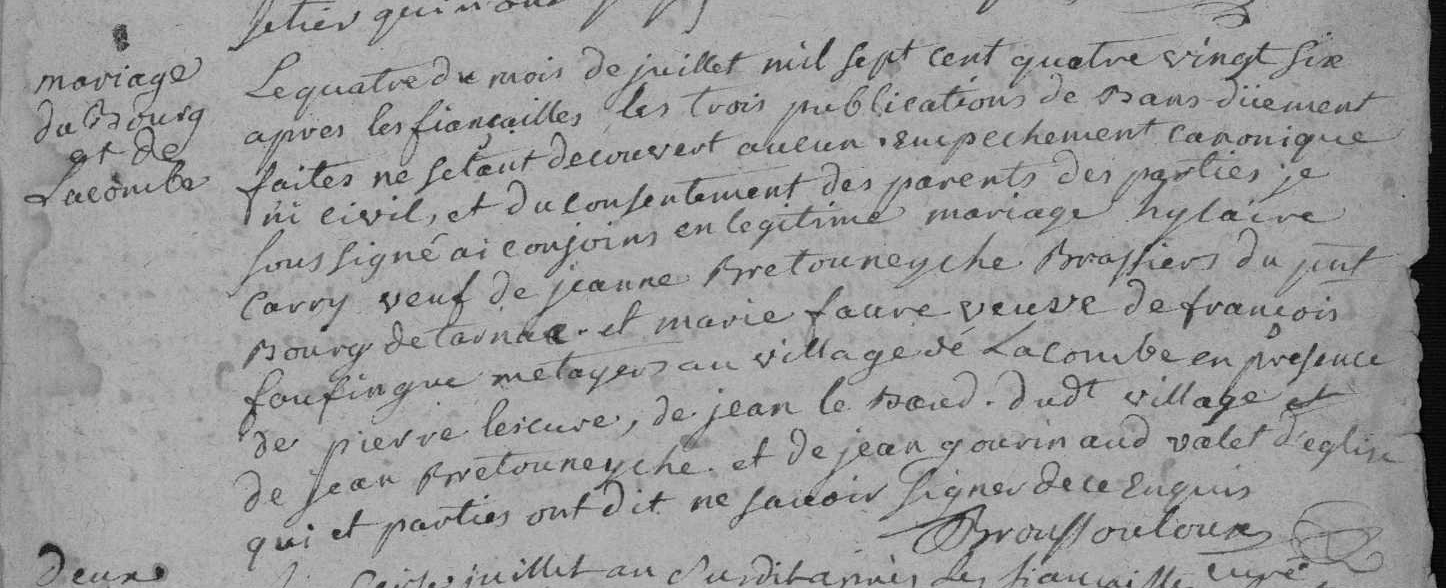 setier qui n'ont
mariage
du Bourg
et de
Lacombe
Le quatre du mois de juillet mil sept cent quatre vingt six
apres les fiancailles les trois publications de Bans düement
faites ne setant decouvert aucun empechement canonique
ni civil, et du consentement des parents des parties je
soussigné ai conjoins en legitime mariage hylaire
Carry veuf de jeanne Bretouneyche Brassiers du pnt
Bourg de tarnac. et marie faure veuve de francois
foufingue metayers au village de Lacombe en presence
de pierre lescure, de jean le Bœud. dudt village et
de jean Bretouneyche. et de jean gourinaud valet d'eglise
qui et parties ont dit ne savoir signer de ce Enquis
Broussouloux
curé
deux
juillet an susdit après les fiancaille